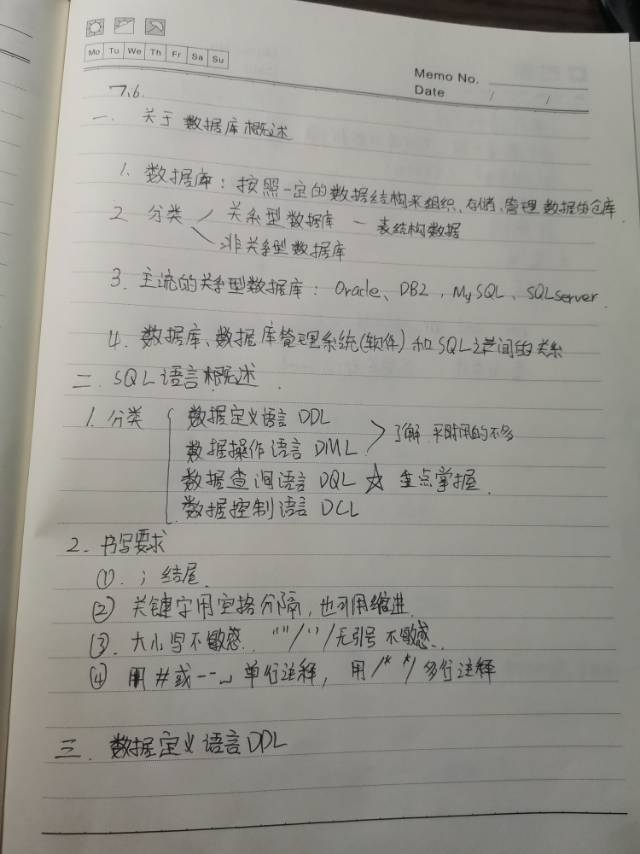 Mo Tu We Th Fr Sa Su
Memo No.
Date / /
7.6.
一. 关于数据库概述
1. 数据库：按照一定的数据结构来组织、存储、管理数据的仓库.
2. 分类 关系型数据库 — 表结构数据
非关系型数据库
3. 主流的关系型数据库：Oracle、DB2，MySQL、SQLserver.
4. 数据库、数据库管理系统(软件)和SQL之间的关系
二. SQL语言概述.
1. 分类 数据定义语言 DDL
数据操作语言 DML 了解 平时用的不多
数据查询语言 DQL ☆ 重点掌握.
数据控制语言 DCL
2. 书写要求
①. ；结尾.
② 关键字用空格分隔，也可用缩进.
③. 大小写不敏感. ""/''/无引号不敏感.
④ 用#或--␣单行注释，用/* */多行注释
三. 数据定义语言DDL